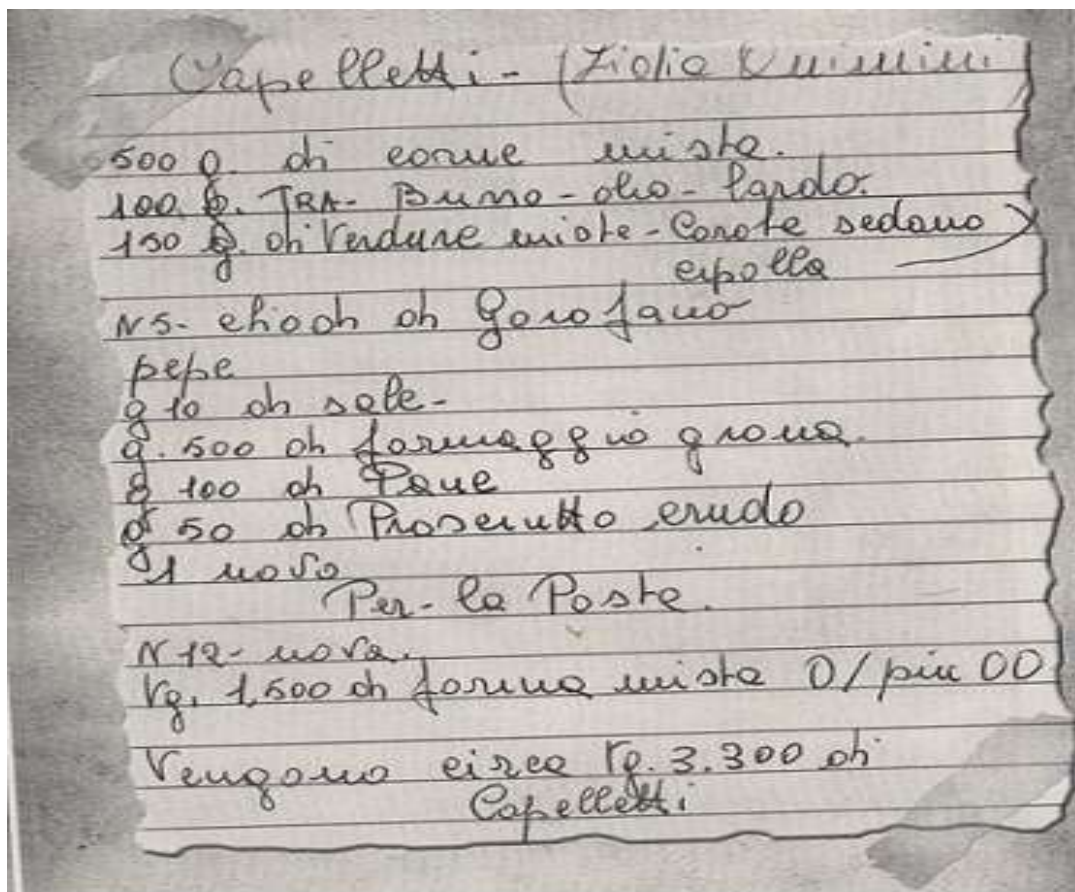 Capelletti - (
500 g. di carne mista.
100 g. TRA - Burro - olio - Lardo.
150 g. di Verdure miste - Carote sedano
cipolla
N 5 - chiodi di Garofano
pepe
g 10 di sale -
g. 500 di formaggio grana.
g 100 di Pane
g 50 di Prosciutto crudo
1 uovo
Per - la Pasta.
N 12 - uova.
Kg. 1,500 di farina mista 0/ più 00
Vengono circa Kg. 3.300 di
Capelletti